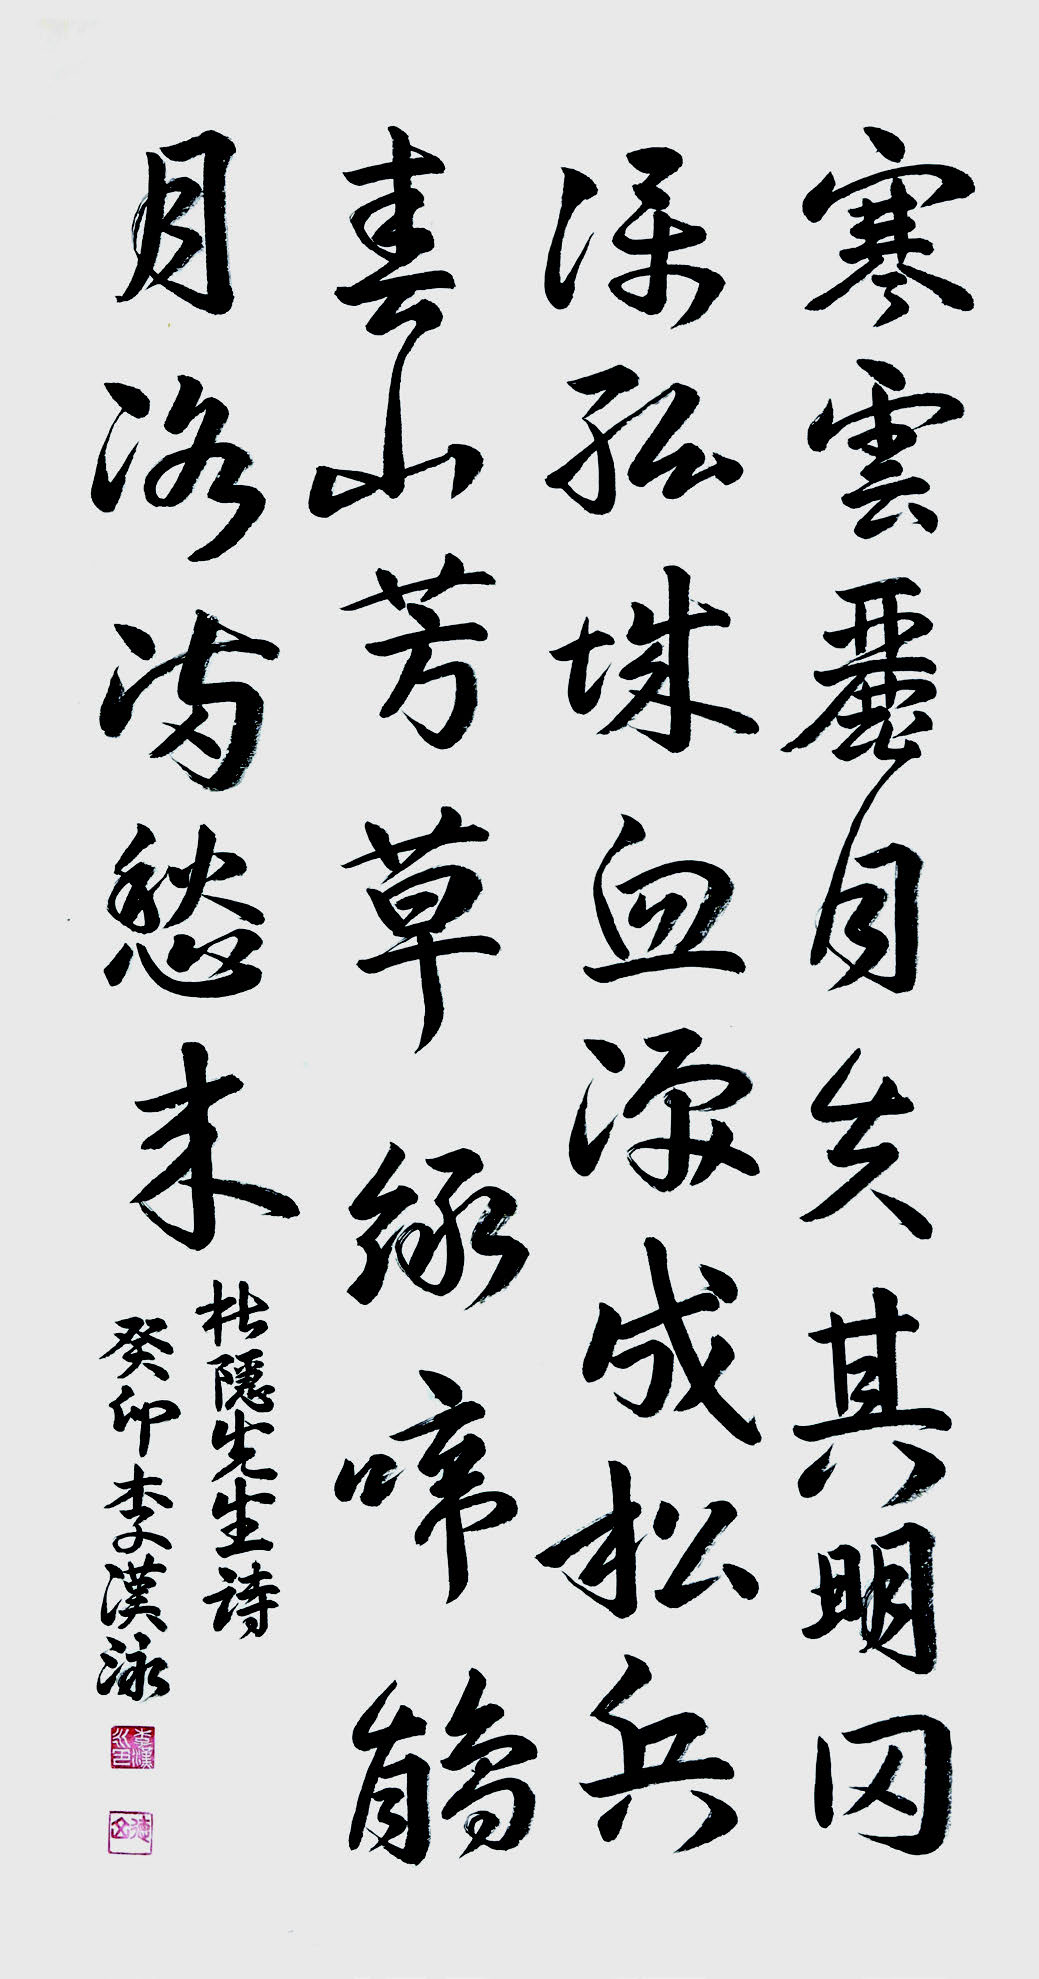 寒雲麗目失其明囚
孤城血成松兵
春山芳草綠啼鵑
月落滿愁未
杜隱先生詩
癸卯 李漢泳